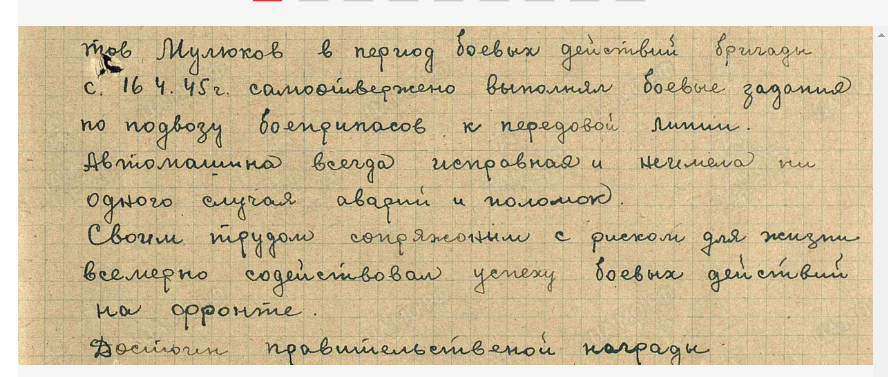 тов Мулюков в период боевых действий бригады
с. 16 4. 45 г. самоотвержено выполнял боевые задания
по подвозу боеприпасов к передовой линии.
Автомашина всегда исправная и неимела ни
одного случая аварий и поломок.
Своим трудом сопряжоным с риском для жизни
всемерно содействовал успеху боевых действий
на фронте.
Достоин правительственой награды